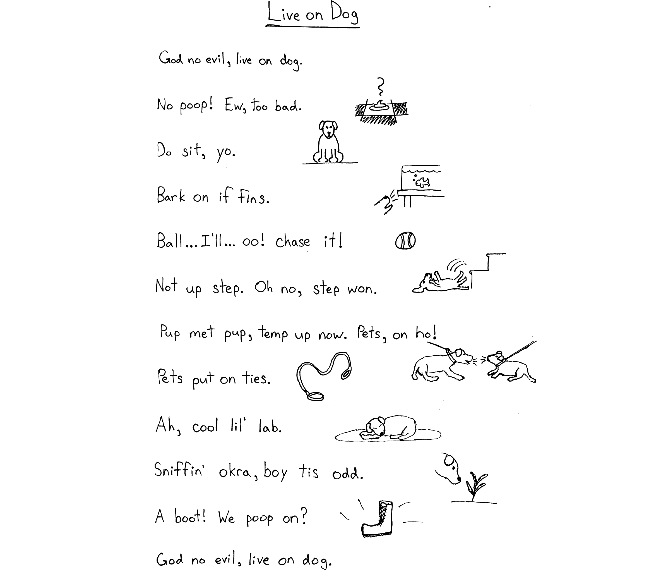 Live on Dog
God no evil, live on dog.
No poop! Ew, too bad.
Do sit, yo.
Bark on if fins.
Ball...I'll... oo! chase it!
Not up step. Oh no, step won.
Pup met pup, temp up now. Pets, on ho!
Pets put on ties.
Ah, cool lil' lab.
Sniffin' okra, boy tis odd.
A boot! We poop on?
God no evil, live on dog.